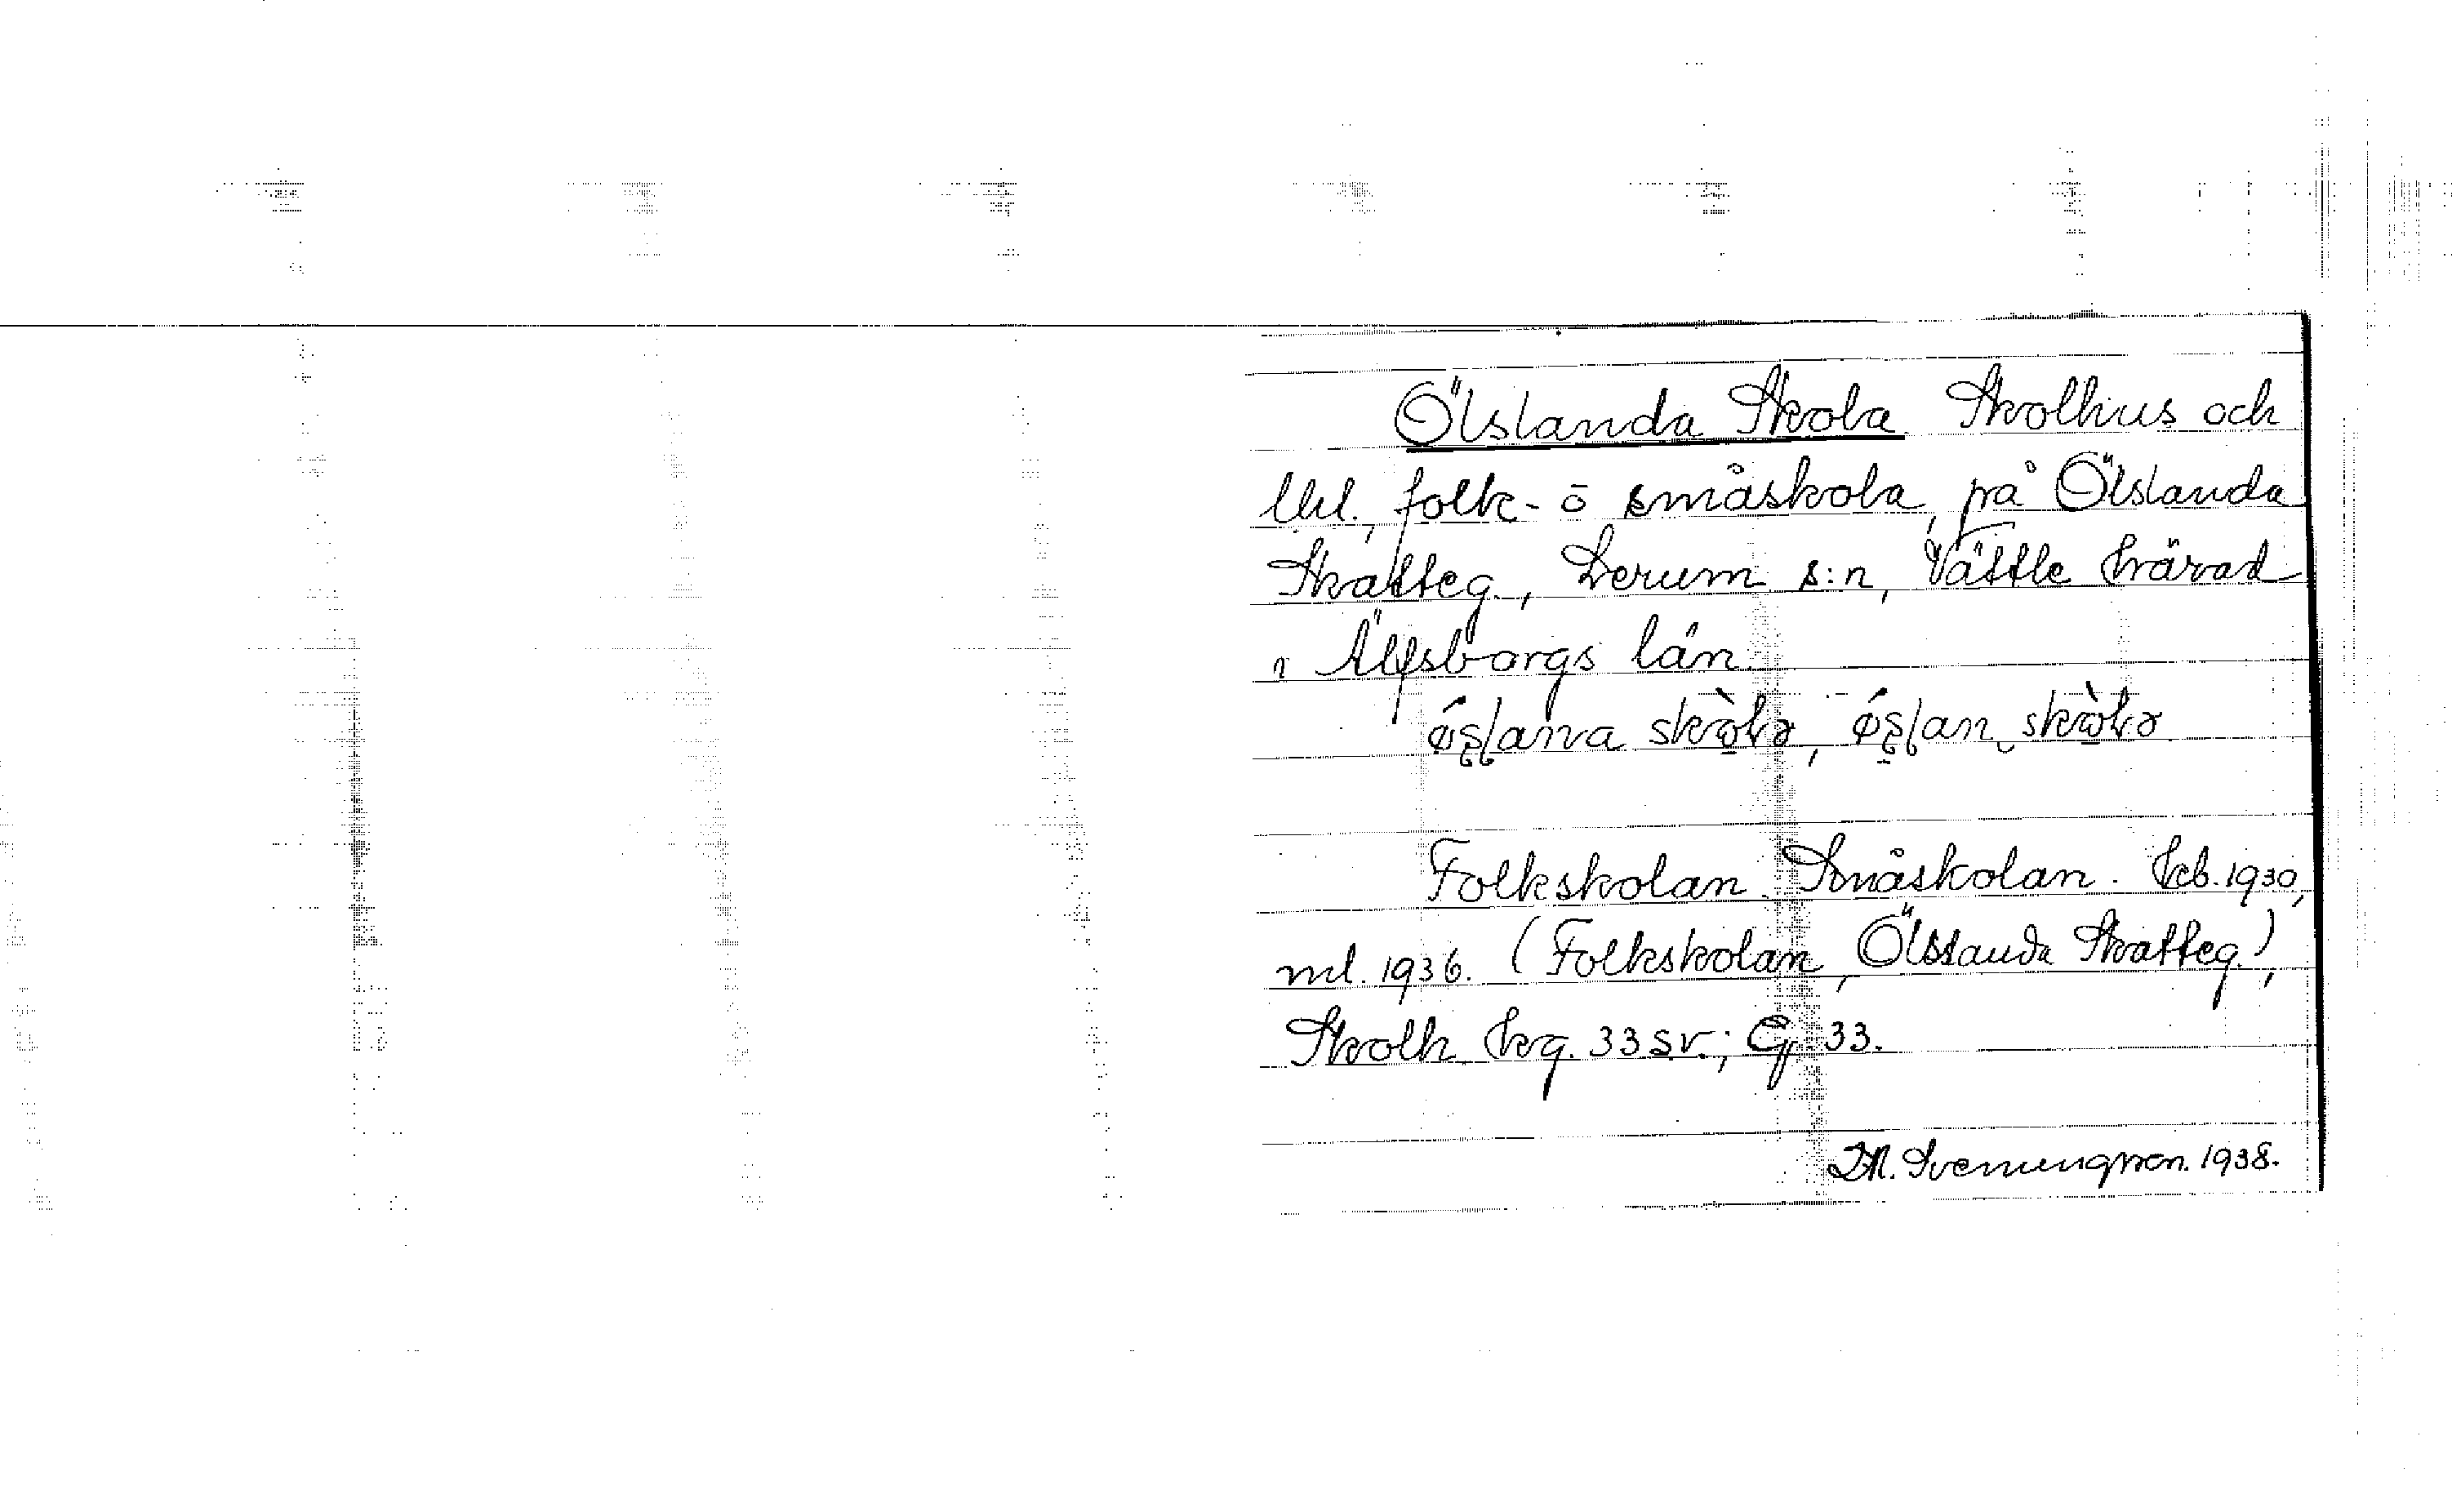 Ölslanda Skola. Skolhus och
lht., folk- o småskola, på Ölslanda
Skatteg., Lerum s:n, Vättle härad
i Älfsborgs län.
Folkskolan. Småskolan. hcb. 1930,
ml. 1936. (Folkskolan, Ölslanda Skatteg.),
Skolh hrg. 33 sv.; Gj 33.
I.M. Svenungsson. 1938.